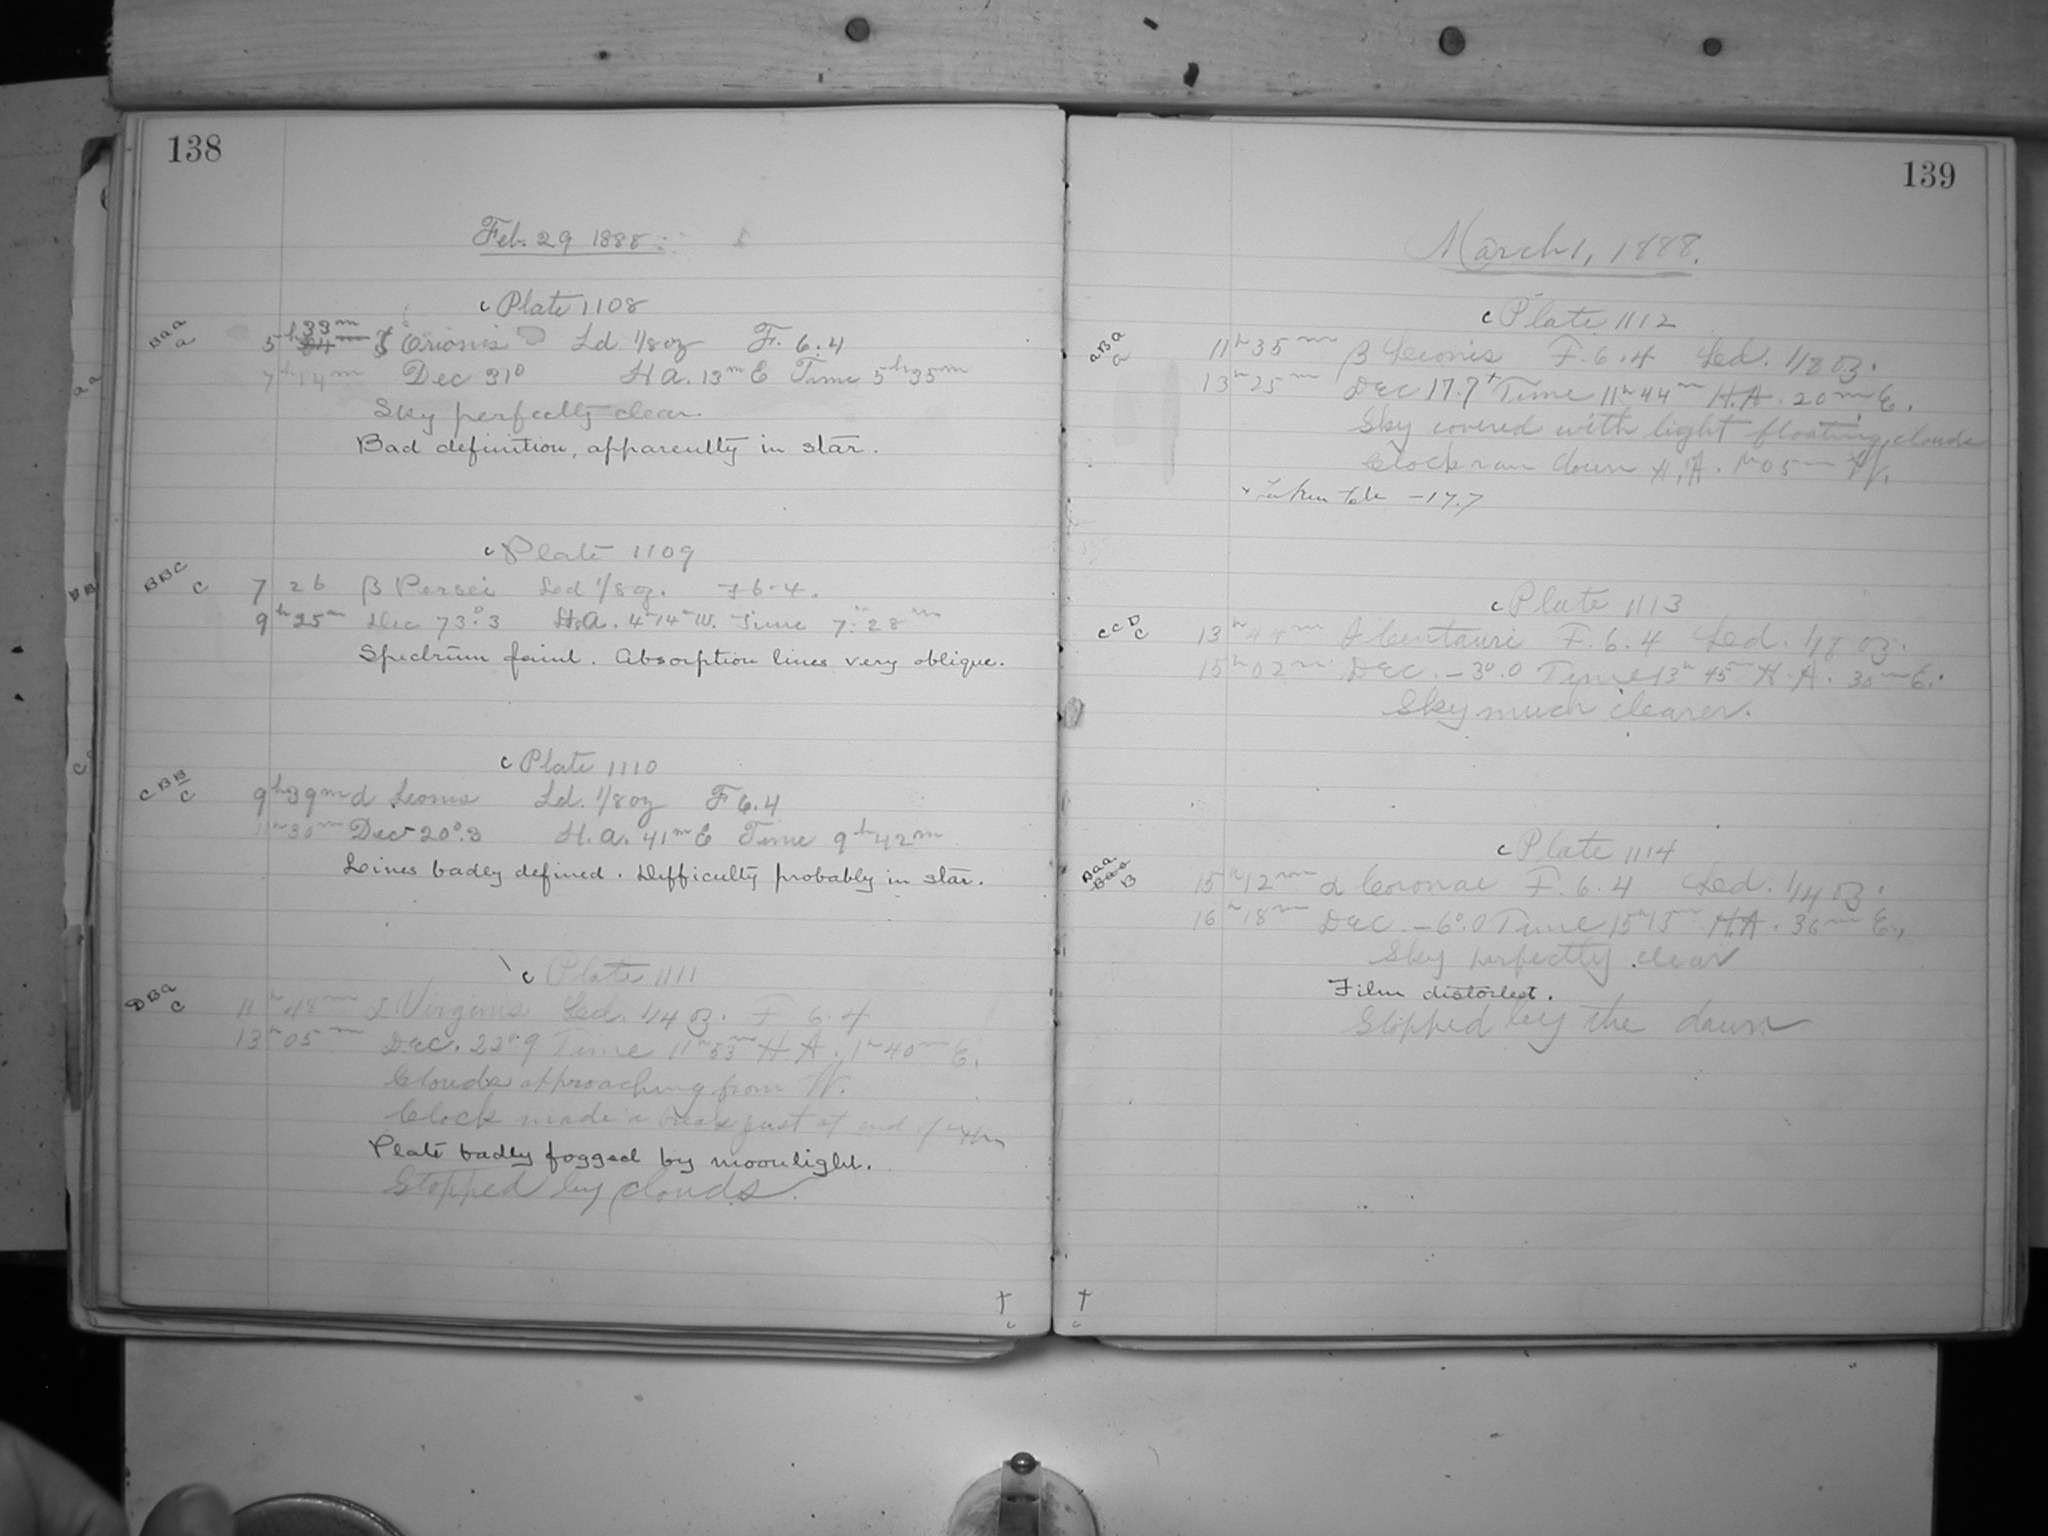 138
Feb. 29 1888
c Plate 1108
Baa
a
5h 33m Orionis Ld 1/8 oz F. 6.4
7h 14m Dec 31° H A. 13m E Time 5h 35m
Sky perfectly clear.
Bad definition, apparently in star.
c Plate 1109
BBC
C
7 26 β Persei Led 1/8 oz. F 6.4.
9h 25m Dec 73°.3 H.A. 4h 14m W. Time 7h 28m
Spectrum faint. Absorption lines very oblique.
c Plate 1110
CBB
C
9h 39m α Leonis Ld. 1/8 oz F 6.4
11h 30m Dec 20°.3 H. A. 41m E Time 9h 42m
Lines badly defined. Difficulty probably in star.
c Plate 1111
DBa
C
11h 48m Virginis Led. 1/4 oz. F. 6.4
13h 05m Dec. 22°.9 Time 11h 53m H. A. 1h 40m E.
Clouds approaching from W.
Clock made a break just at end of
Plate badly fogged by moonlight.
Stopped by clouds.
139
March 1, 1888.
c Plate 1112
aBa
a
11h 35m β Leonis F. 6.4 Led. 1/8 oz.
13h 25m Dec 17.7+ Time 11h 44m H.A. 20m E.
Sky covered with light floating clouds
Clock ran down H.A. 1h 05m W.
+ Taken to be -17.7
c Plate 1113
CCD
C
13h 44m Centauri F. 6.4 Led. 1/8 oz.
15h 02m Dec. -3°.0 Time 13h 45m H. A. 30m E.
Sky much clearer.
c Plate 1114
Baa
B
15h 12m α Coronae F. 6.4 Led. 1/4 oz.
16h 18m Dec. -6°.0 Time 15h 13m H.A. 36m E.
Sky perfectly clear
Film distorted.
Stopped by the dawn